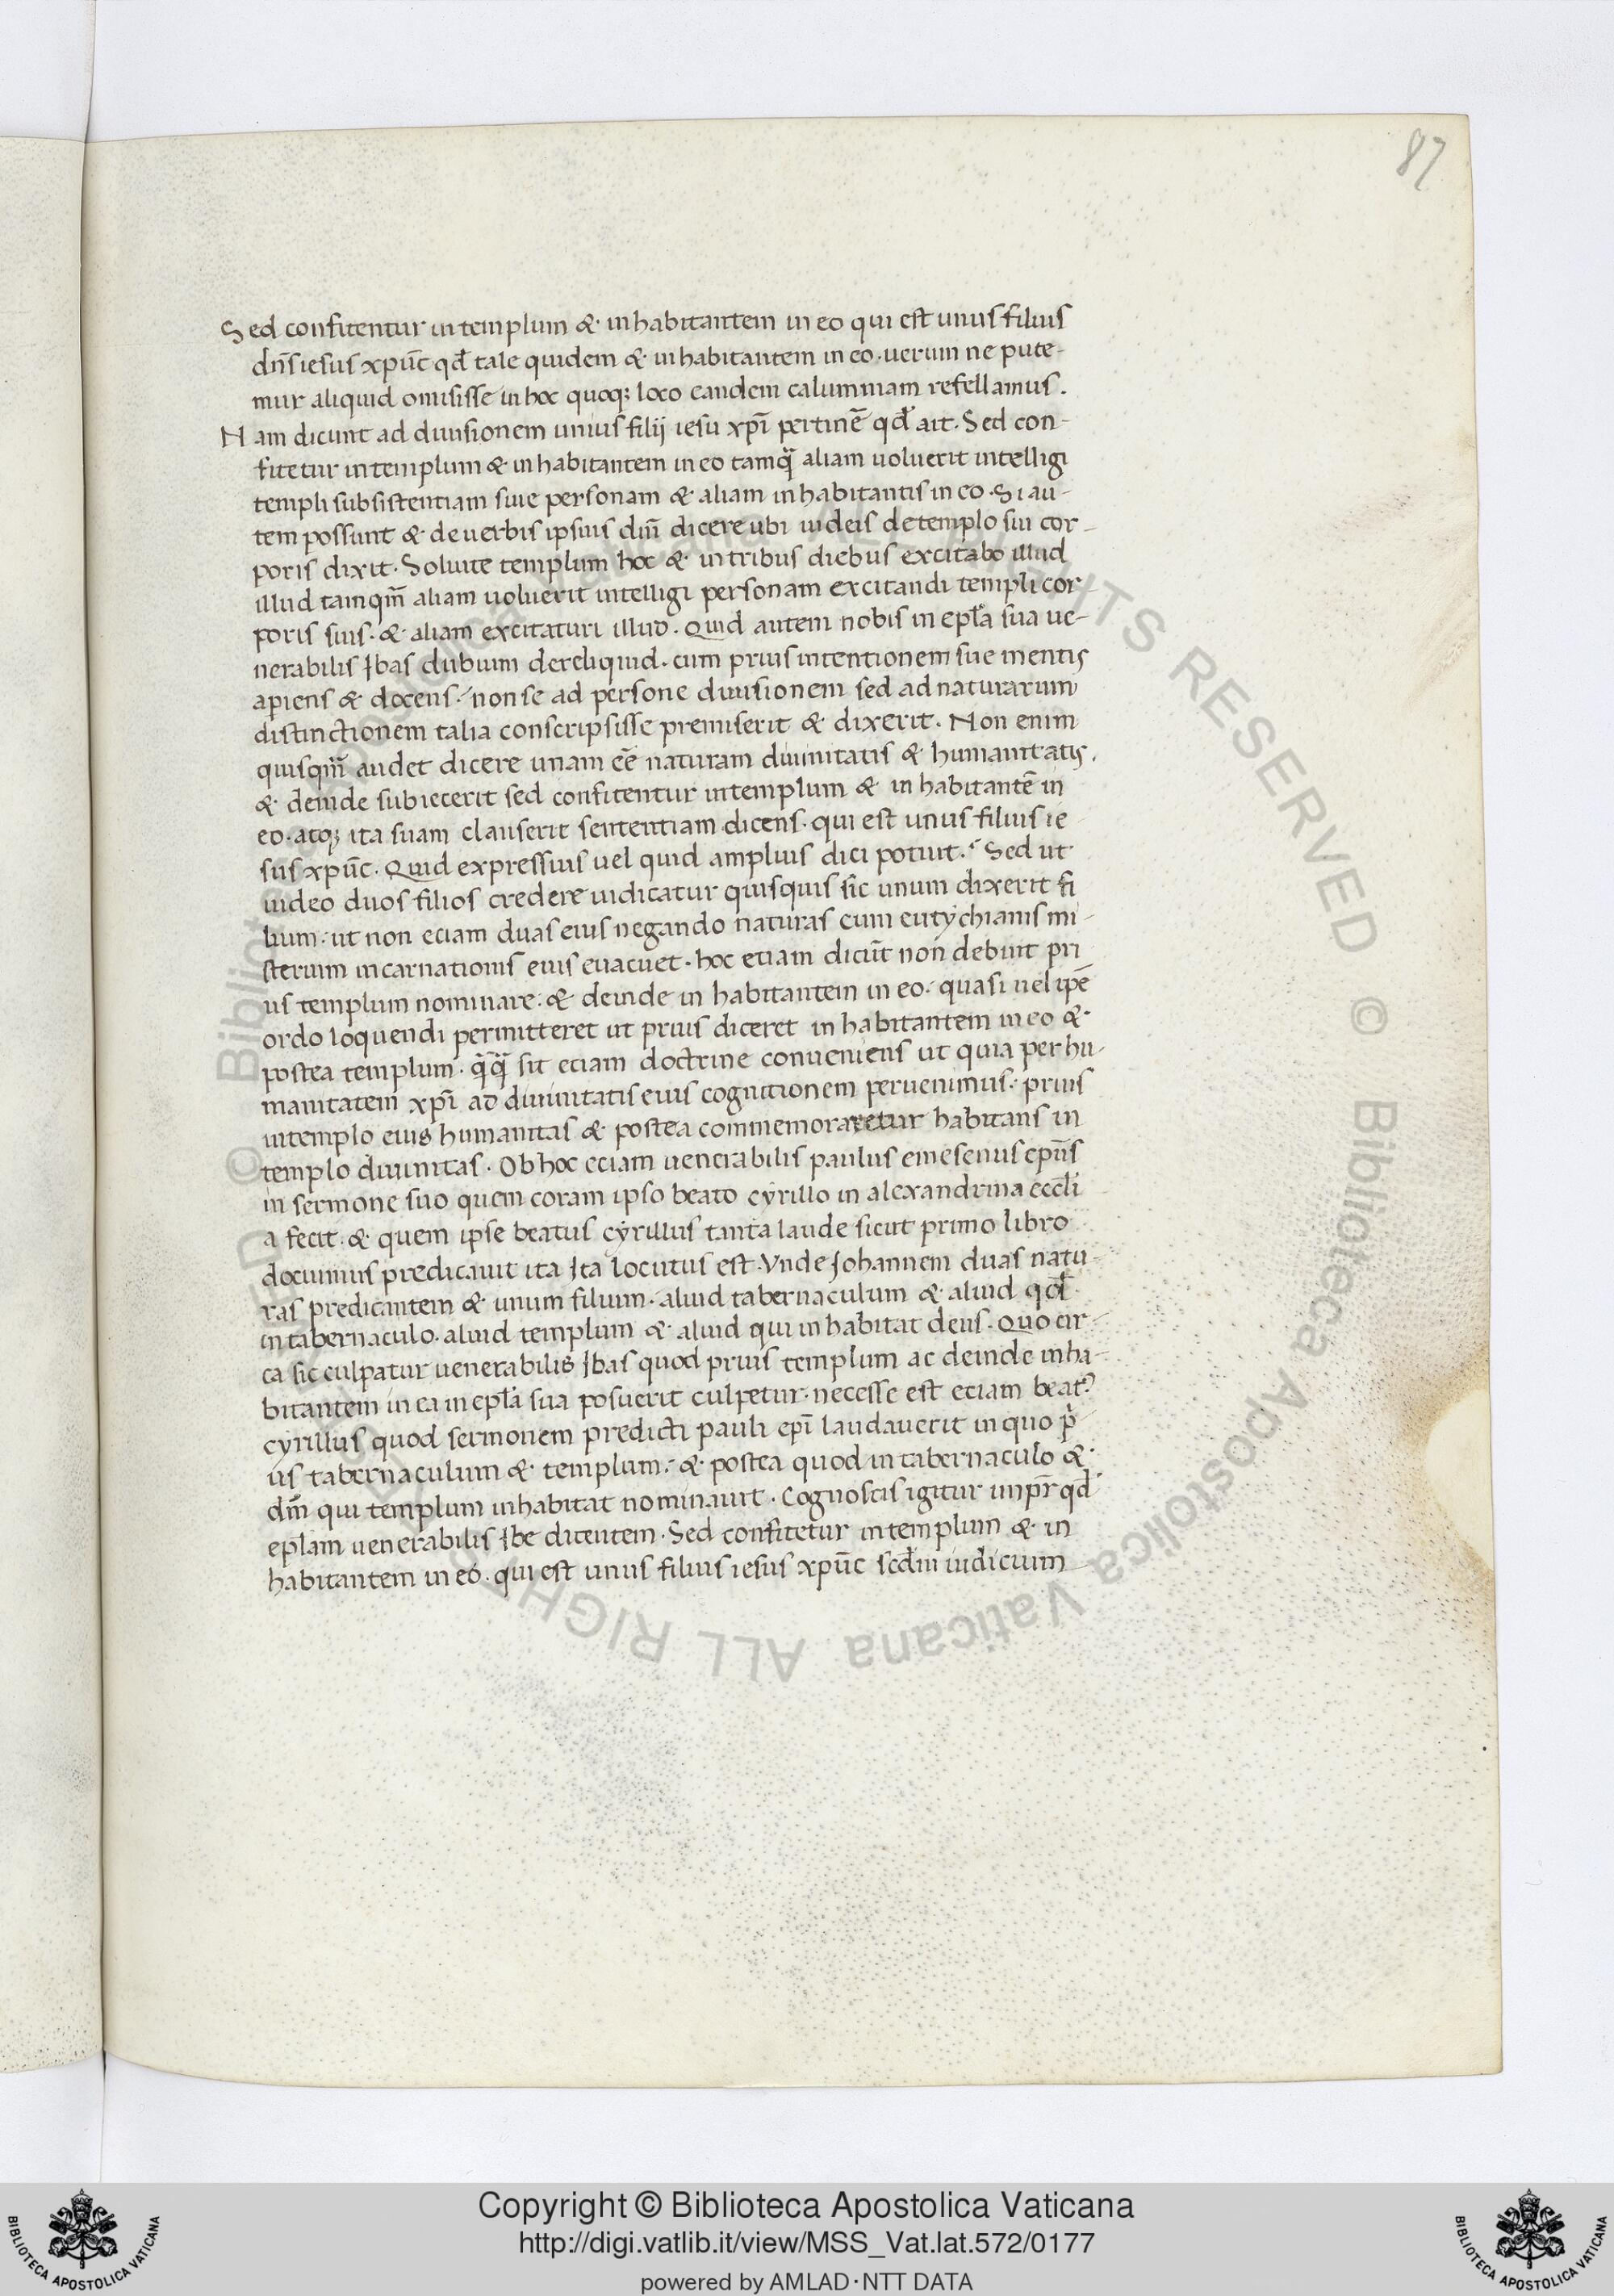 87
Sed confitentur in templum & inhabitantem in eo qui est unus filius
dn̄s iesus xpūc qđ tale quidem & inhabitantem in eo · uerum ne pute-
mur aliquid omisisse in hoc quoq; loco eandem calumniam refellamus.
Nam dicunt ad diuisionem unius filij iesu xpī pertinē qđ ait. Sed con-
fitetur in templum & inhabitantem in eo tamq̄ aliam uoluerit intelligi
templi subsistentiam siue personam & aliam inhabitantis in eo. Si au-
tem possunt & de uerbis ipsius dnī dicere ubi iudeis de templo sui cor-
poris dixit. Soluite templum hoc & in tribus diebus excitabo illud
illud tamqm̄ aliam uoluerit intelligi personam excitandi templi cor-
poris suis · & aliam excitaturi illud. Quid autem nobis in epła sua ue-
nerabilis Ibas dubium dereliquid · cum prius intentionem sue mentis
apiens & docens · non se ad persone diuisionem sed ad naturarum
distinctionem talia conscripsisse premiserit & dixerit. Non enim
quisqm̄ audet dicere unam eē naturam diuinitatis & humanitatis.
& deinde subiecerit sed confitentur in templum & inhabitantē in
eo · atq; ita suam clauserit sententiam dicens · qui est unus filius ie
sus xpūc. Quid expressius uel quid amplius dici potuit. Sed ut
uideo duos filios credere iudicatur quisquis sic unum dixerit fi
lium · ut non eciam duas eius negando naturas cum eutychianis mi-
sterium incarnationis eius euacuet · hoc etiam dicūt non debuit pri
us templum nominare · & deinde inhabitantem in eo · quasi uel ipē
ordo loquendi permitteret ut prius diceret inhabitantem in eo &
postea templum · q̄q̄ sit eciam doctrine conueniens ut quia per hu-
manitatem xpī ad diuinitatis eius cognitionem peruenimus · prius
in templo eius humanitas & postea commemoraretur habitans in
templo diuinitas. Ob hoc eciam uenerabilis paulus emesenus epūs
in sermone suo quem coram ipso beato cyrillo in alexandrina eccłi
a fecit · & quem ipse beatus cyrillus tanta laude sicut primo libro
docuimus predicauit ita Ita locutus est. Vnde Johannem duas natu-
ras predicantem & unum filium · aliud tabernaculum & aliud qđ
in tabernaculo · aliud templum & aliud qui inhabitat deus. Quo cir-
ca sic culpatur uenerabilis Ibas quod prius templum ac deinde inha-
bitantem in ea in epła sua posuerit culpetur · necesse est eciam beat⁹
cyrillus quod sermonem predicti pauli epī laudauerit in quo p̄-
us tabernaculum & templum · & postea quod in tabernaculo &
dm̄ qui templum inhabitat nominauit. Cognoscis igitur imp̄r qđ
epłam uenerabilis Ibe dicentem. Sed confitetur in templum & in
habitantem in eo · qui est unus filius iesus xpūc scđm iudicium
© Biblioteca Apostolica Vaticana ALL RIGHTS RESERVED
© Biblioteca Apostolica Vaticana ALL RIGHTS RESERVED
Copyright © Biblioteca Apostolica Vaticana
http://digi.vatlib.it/view/MSS_Vat.lat.572/0177
powered by AMLAD·NTT DATA
BIBLIOTECA APOSTOLICA VATICANA
BIBLIOTECA APOSTOLICA VATICANA